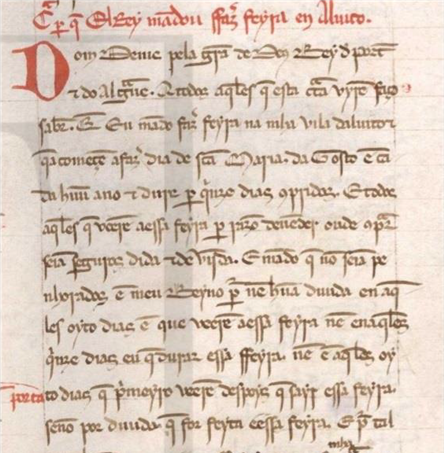 Cᵃ p q̃ ElRey mãdou ffaz̃ feyra en Aluito.
Dom Denis pela gr̃a de Deꝰ Rey de Port
⁊ do Algarue. A todos aq̃les q̃ esta cr̃a vyrẽ faço
saber. q̃ Eu mãdo faz̃ feyra na mha vila daluito ⁊
q̃a começẽ a faz̃ dia de scã Maria da Gosto ẽ ca
da hũu ano ⁊ dure p q̃ĩze dias conpridos. E todos
aq̃les q̃ veerẽ a essa feyra p razõ de uẽder ou de cõprar
seiã seguros dida ⁊ de vĩda. E mãdo q̃ nõ seiã pe
nhorados ẽ meu Reyno p̃ nẽ hũa diuida en aq̃
les oyto dias ẽ que veerẽ a essa feyra nẽ en aq̃les
q̃ĩze dias eu q̃ durar essa ffeyra. nẽ ẽ aq̃les oy
to dias q̃ p̃meyro veerẽ despoys q̃ sayr essa feyra.
senõ por diuida q̃ for feyta ẽ essa feyra. E p̃ tal